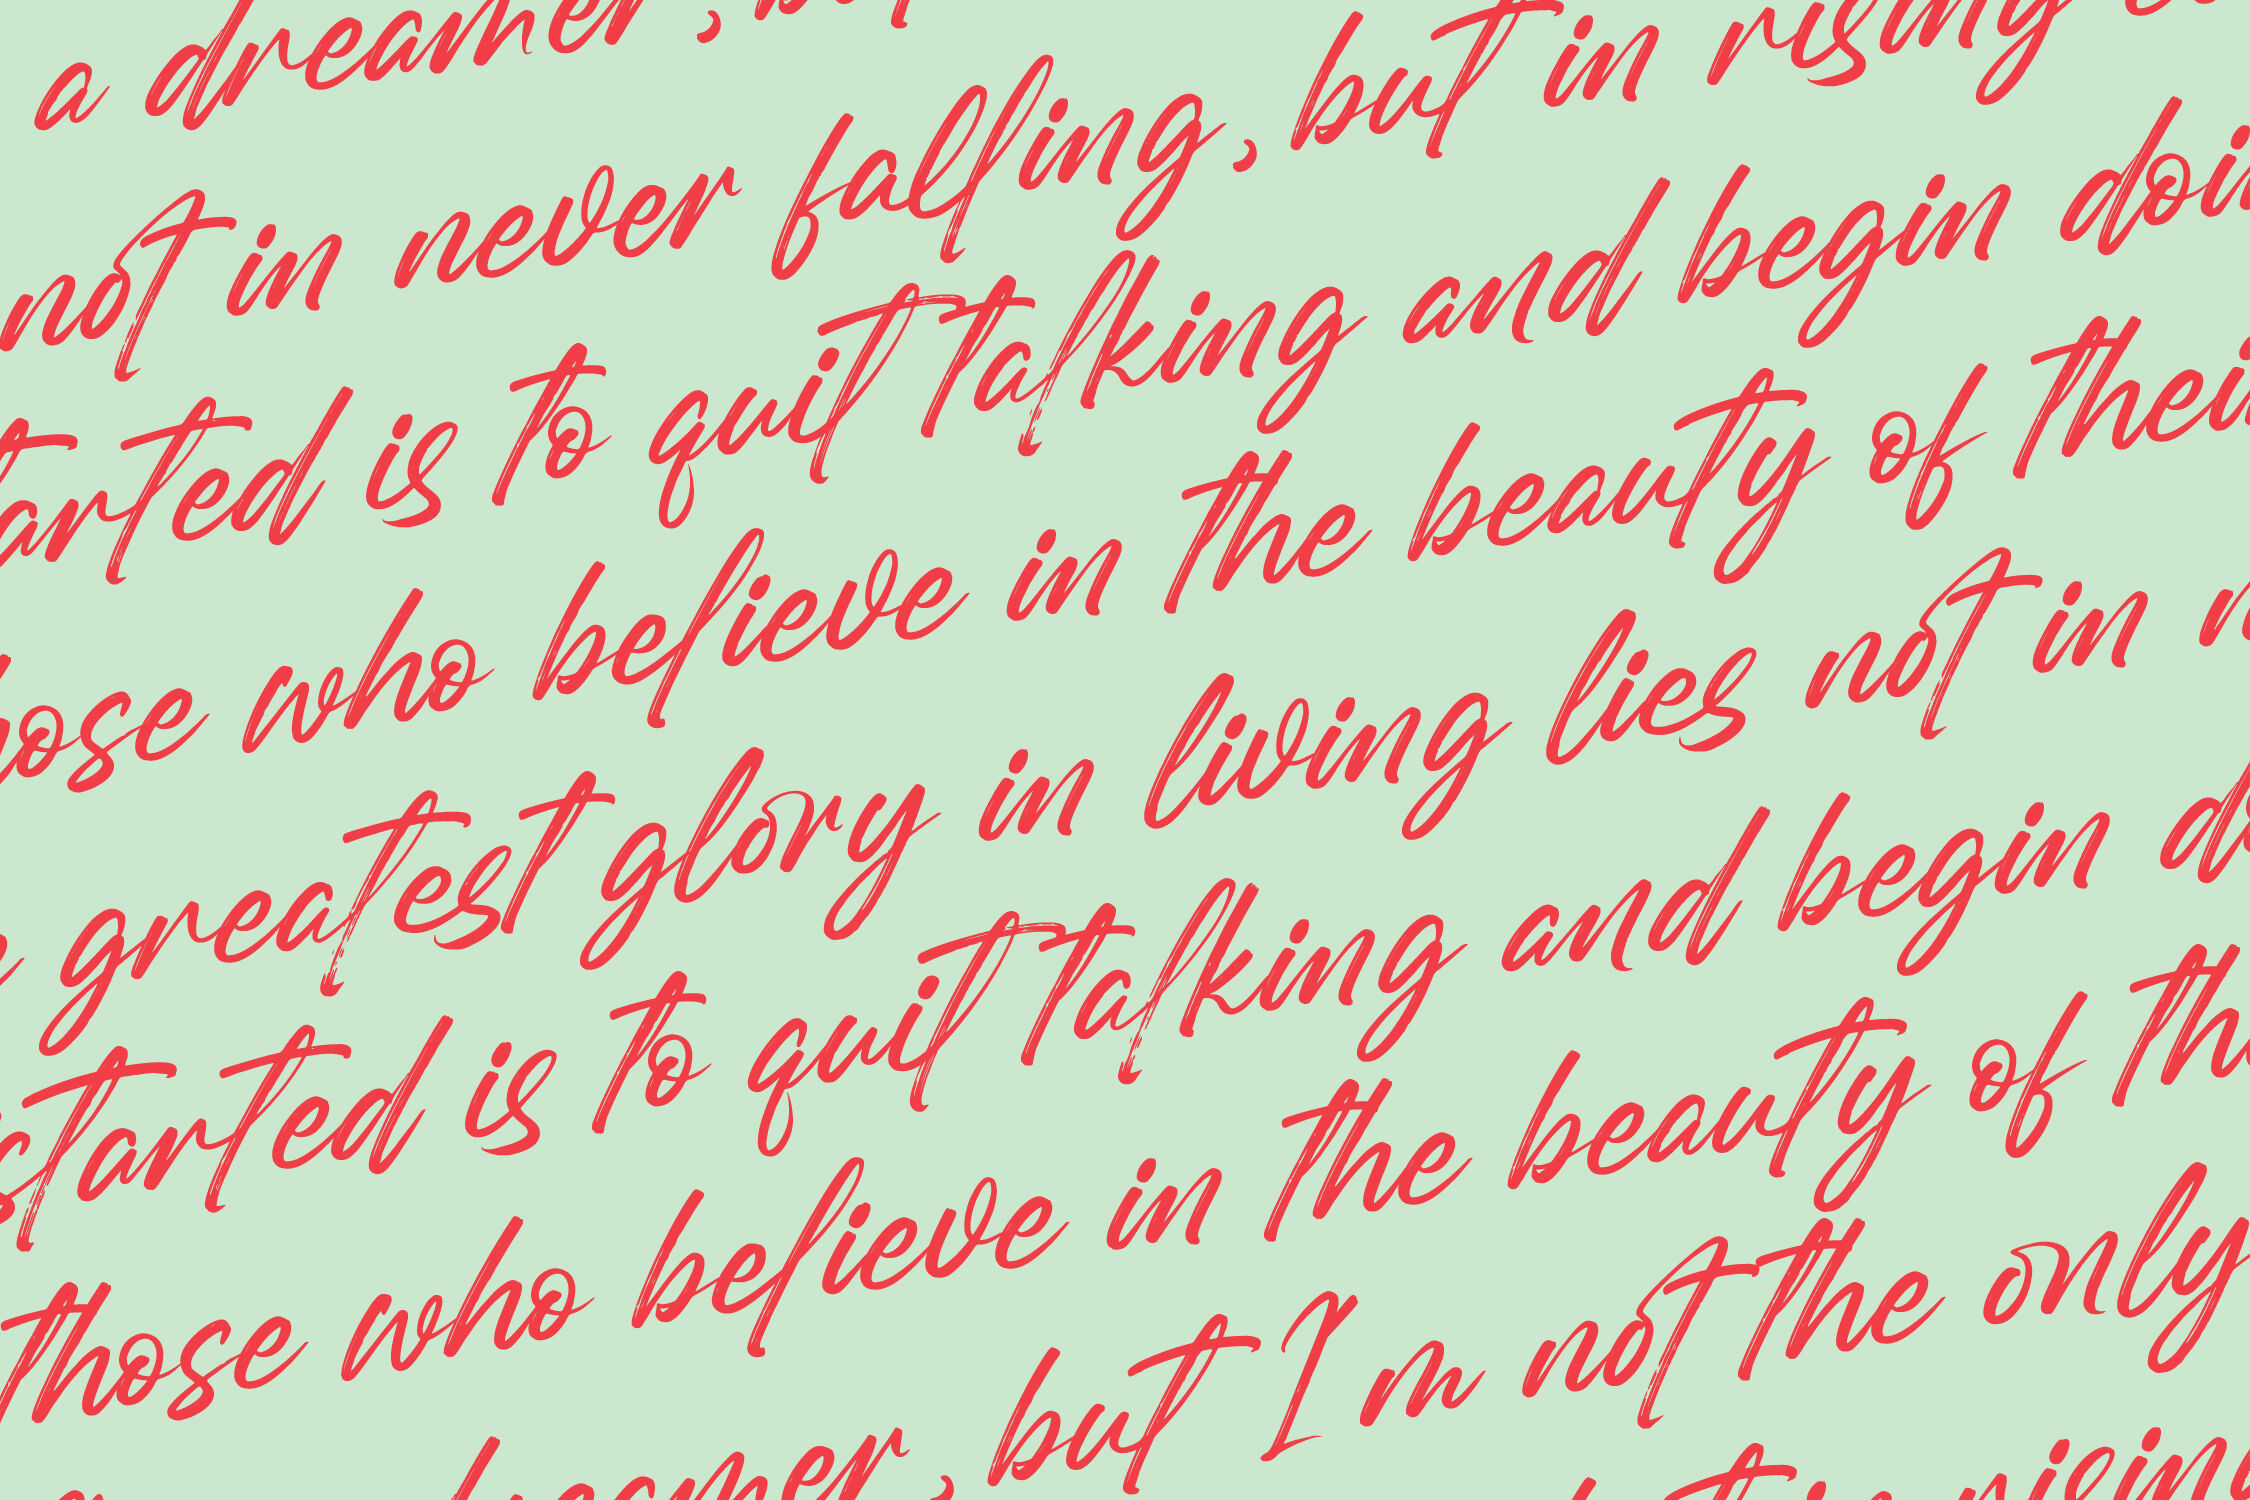 a dreamer,
not in never falling, but in rising
started is to quit talking and begin doin
hose who believe in the beauty of thei
greatest glory in living lies not in n
started is to quit talking and begin do
those who believe in the beauty of th
dreamer, but I'm not the only
but in rising